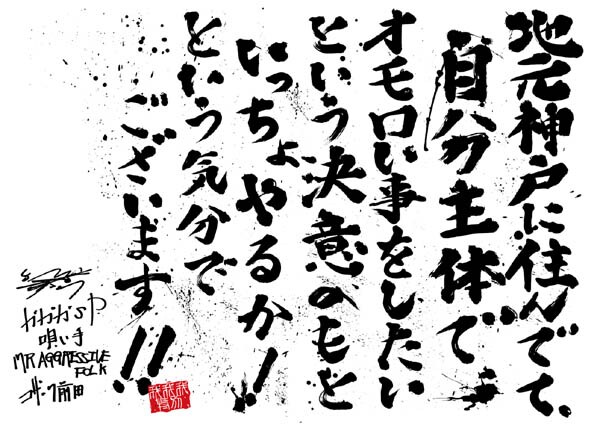 地元神戸に住んでて、
自分主体で
オモロい事をしたい
という決意のもと
いっちょやるか!
という気分で
ございます!!
ガガガSP
唄い手
MR AGGRESSIVE
FOLK
コザック前田